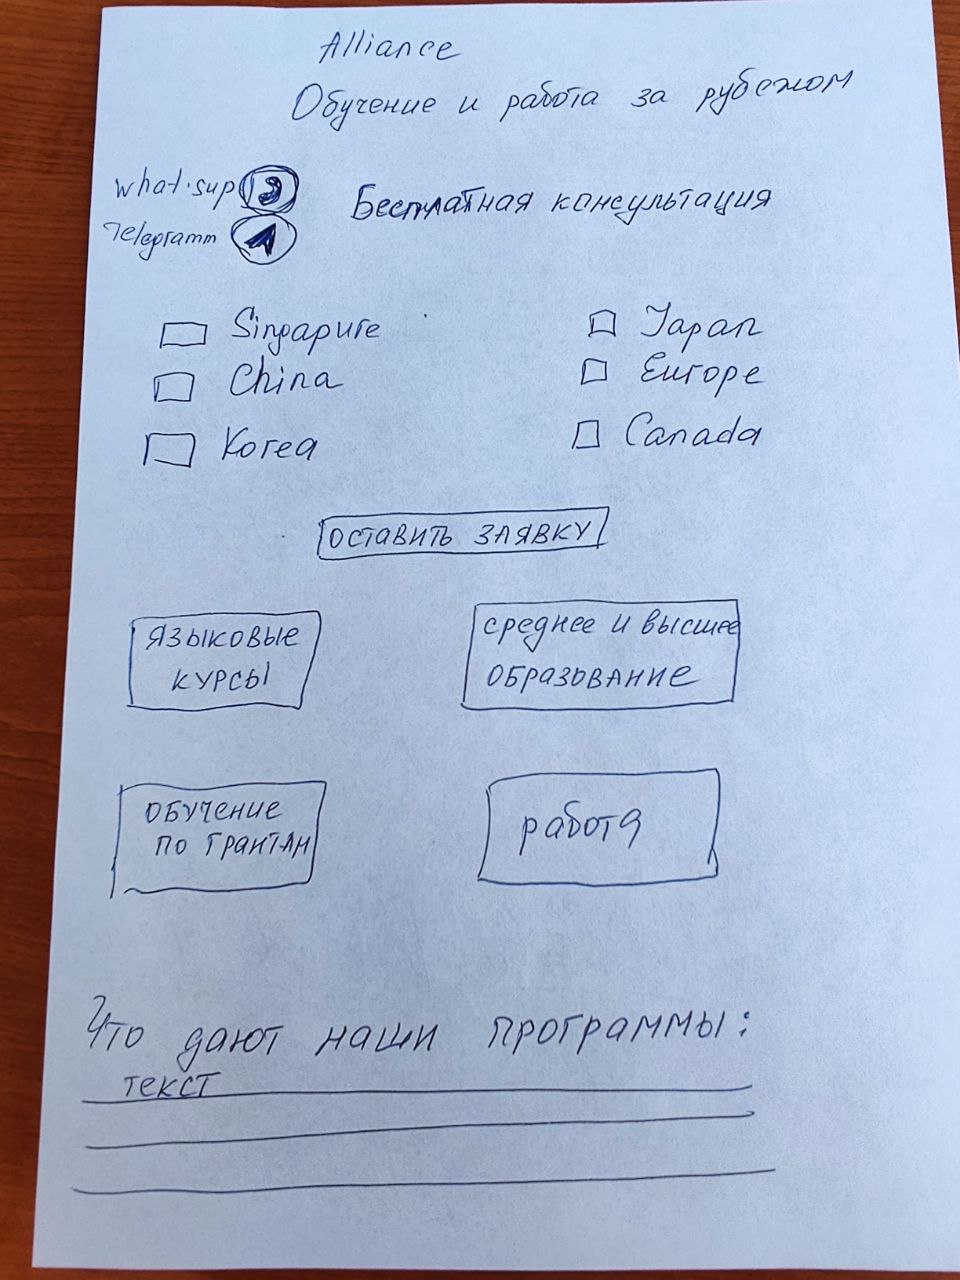 Alliance
Обучение и работа за рубежом
what.sup
Telegramm
Бесплатная консультация
Singapure
Japan
China
Europe
Korea
Canada
ОСТАВИТЬ ЗАЯВКУ
ЯЗЫКОВЫЕ
КУРСЫ
СРЕДНЕЕ И ВЫСШЕЕ
ОБРАЗОВАНИЕ
ОБУЧЕНИЕ
ПО ГРАНТАМ
работа
Что дают наши программы:
текст